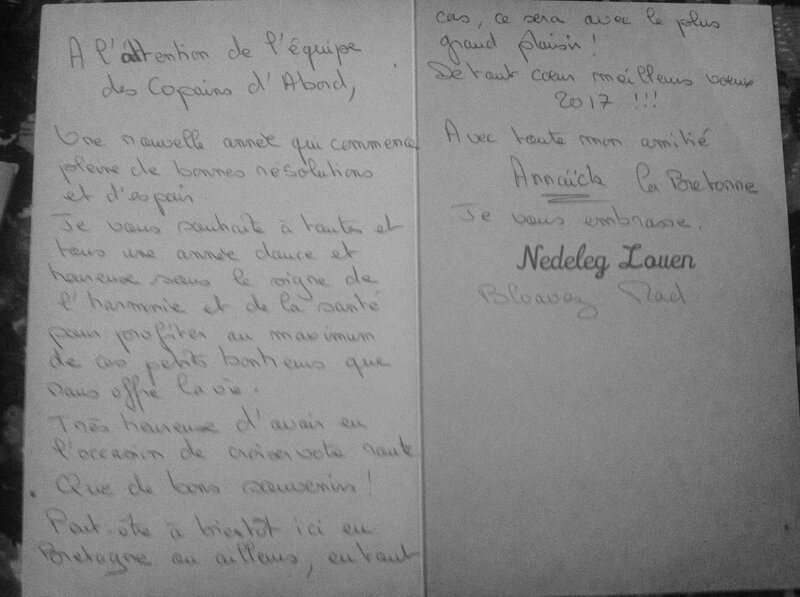 A l'attention de l'équipe
des Copains d'Abord,
Une nouvelle année qui commence
pleine de bonnes résolutions
et d'espoir.
Je vous souhaite à toutes et
tous une année douce et
heureuse sous le signe de
l'harmonie et de la santé
pour profiter au maximum
de ces petits bonheurs que
nous offre la vie.
Très heureuse d'avoir eu
l'occasion de croiser votre route
Que de bons souvenirs !
Peut-être à bientôt ici en
Bretagne ou ailleurs, en tout
cas, ce sera avec le plus
grand plaisir !
De tout cœur meilleurs voeux
2017 !!!
Avec toute mon amitié
Annaïck la Bretonne
Je vous embrasse.
Nedeleg Louen
Bloavez Mad